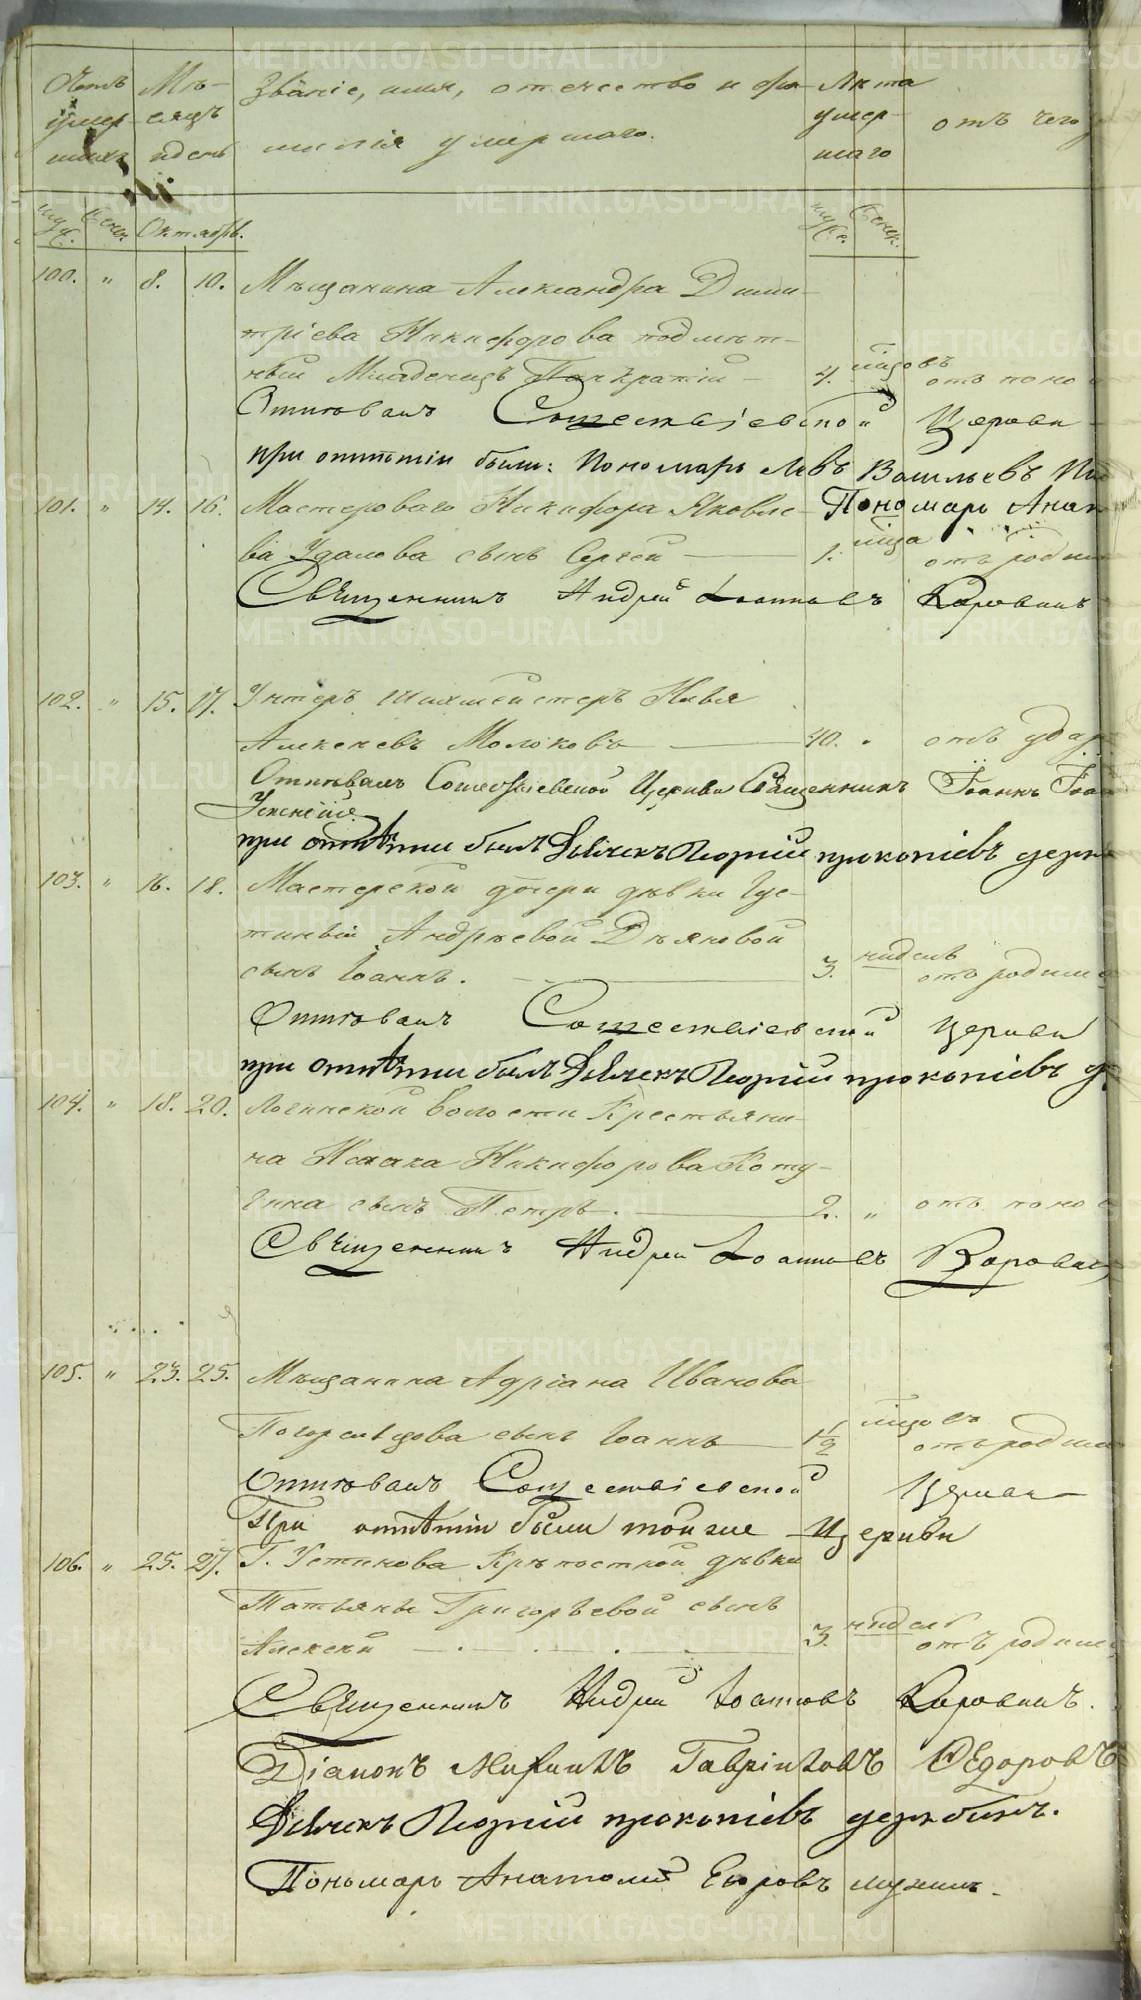 Счетъ Мѣ- Званіе, имя, отечество и фа- Лѣта
умер- сяцъ милія умершаго. умер- отъ чего
шихъ и день шаго
муж. женск. Октябрь. муж. женск.
100. " 8. 10. Мѣщанина Александра Дими-
тріева Никифорова подмѣт-
ный Младенецъ Панкратій — 4. мѣсяцовъ отъ поно
Отпѣвалъ Сошествіевской Церкви
при отпѣтіи были: Пономарь Левъ Васильевъ
101. " 14. 16. Мастероваго Никифора Яковле- Пономарь Анат
ва Удалова сынъ Сергей — 1. мѣсяца отъ родим
Священникъ Андрей Іоанновъ Коровинъ
102. " 15. 17. Унтеръ Шихтмейстеръ Илья
Алексеевъ Молоковъ — 40. " отъ удар
Отпѣвалъ Сошествіевской Церкви Священникъ Іоаннъ
Успенскій
при отпѣтіи былъ Дьячекъ Георгій Прокопіевъ
103. " 16. 18. Мастерской дочери дѣвки Гус-
тиньи Андреевой Дьяковой
сынъ Іоаннъ. — 3. недель отъ родим
Отпѣвалъ Сошествіевской Церкви
при отпѣтіи былъ Дьячекъ Георгій Прокопіевъ
104. " 18. 20. Логинской волости Крестьяни-
на Исаака Никифорова Коту-
гина сынъ Петръ. — 2. " отъ поно
Священникъ Андрей Іоанновъ Коровин
105. " 23. 25. Мѣщанина Адріана Иванова
Погорельцова сынъ Іоаннъ — 1 1/2 мѣсяцовъ отъ родим
Отпѣвалъ Сошествіевской Церкви
При отпѣтіи были тойже Церкви
106. " 25. 27. Г. Устинова Крѣпостной дѣвки
Татьяны Григорьевой сынъ
Алексей — 3. недель отъ родим
Священникъ Андрей Іоанновъ Коровинъ.
Діаконъ Михаилъ Гавріиловъ Ѳедоровъ
Дьячекъ Георгій Прокопіевъ Дерябинъ.
Пономарь Анатолій Егоровъ
METRIKI.GASO-URAL.RU